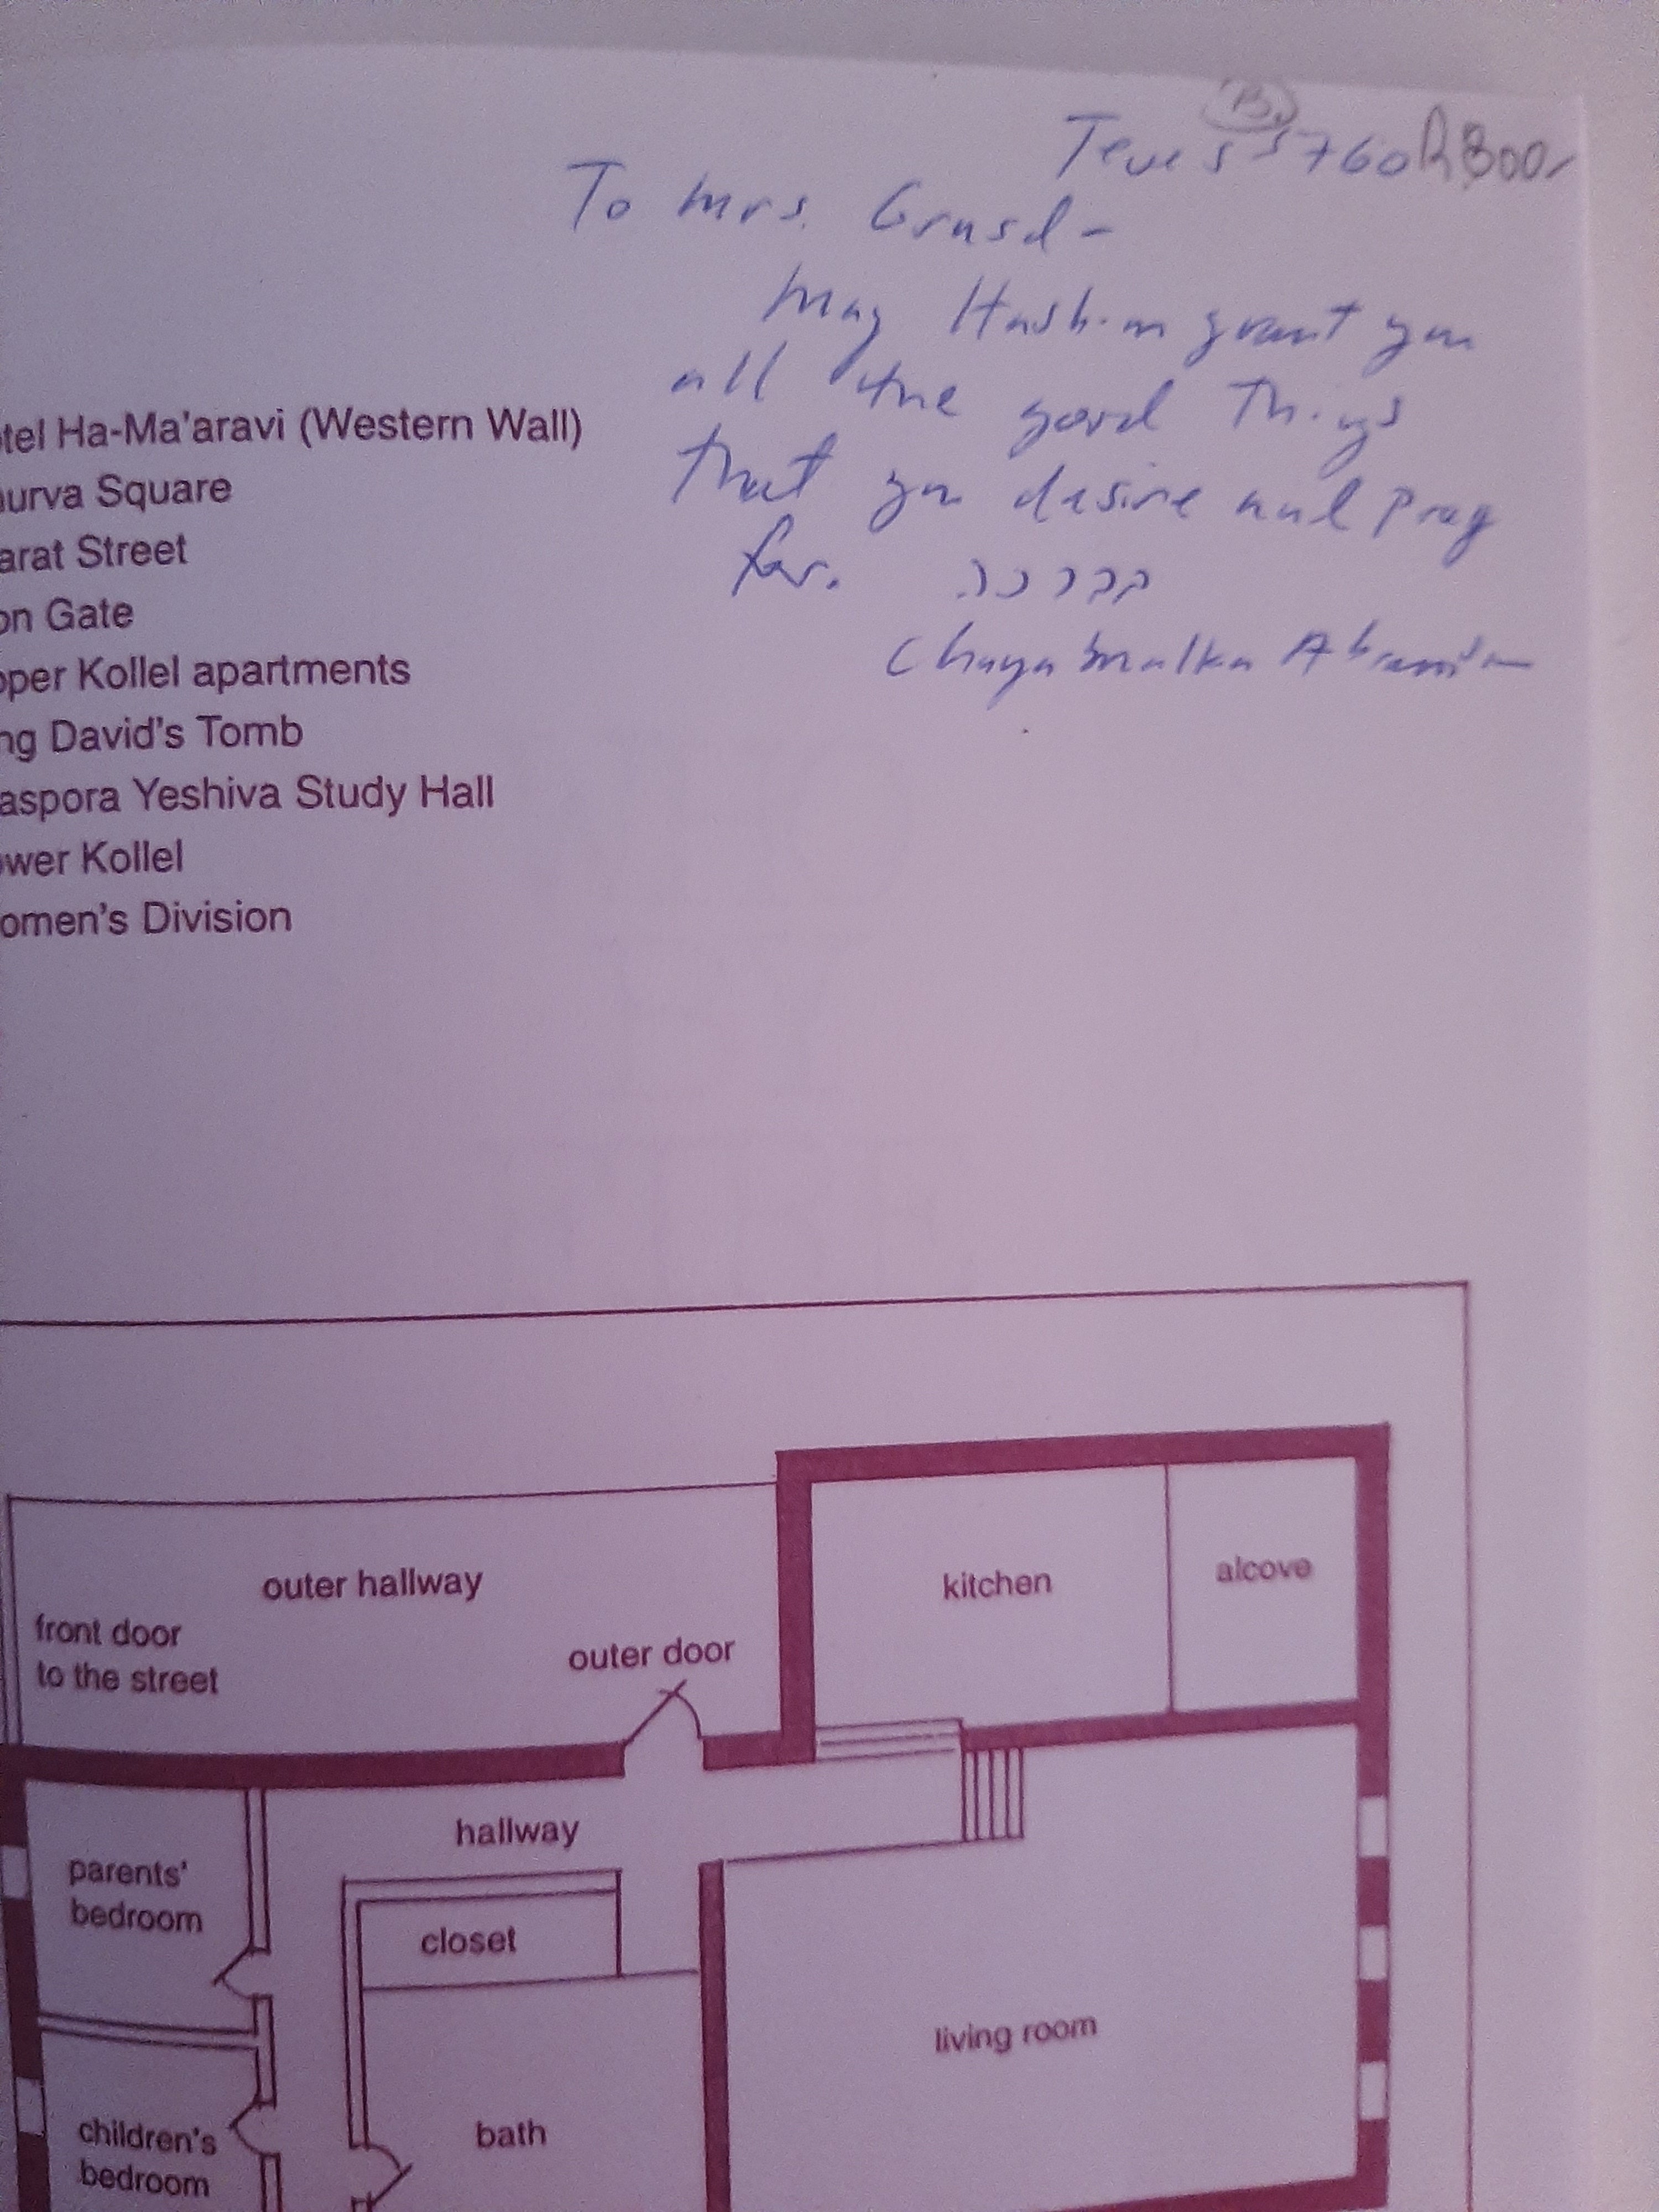 B.
Teves 5760 R300/
To Mrs. Grusd -
May Hashem grant you
all the good things
that you desire and pray
for.
Chaya Malka Abramson
tel Ha-Ma'aravi (Western Wall)
urva Square
arat Street
on Gate
per Kollel apartments
ng David's Tomb
aspora Yeshiva Study Hall
wer Kollel
omen's Division
outer hallway
kitchen
alcove
front door
to the street
outer door
hallway
parents'
bedroom
closet
living room
children's
bedroom
bath